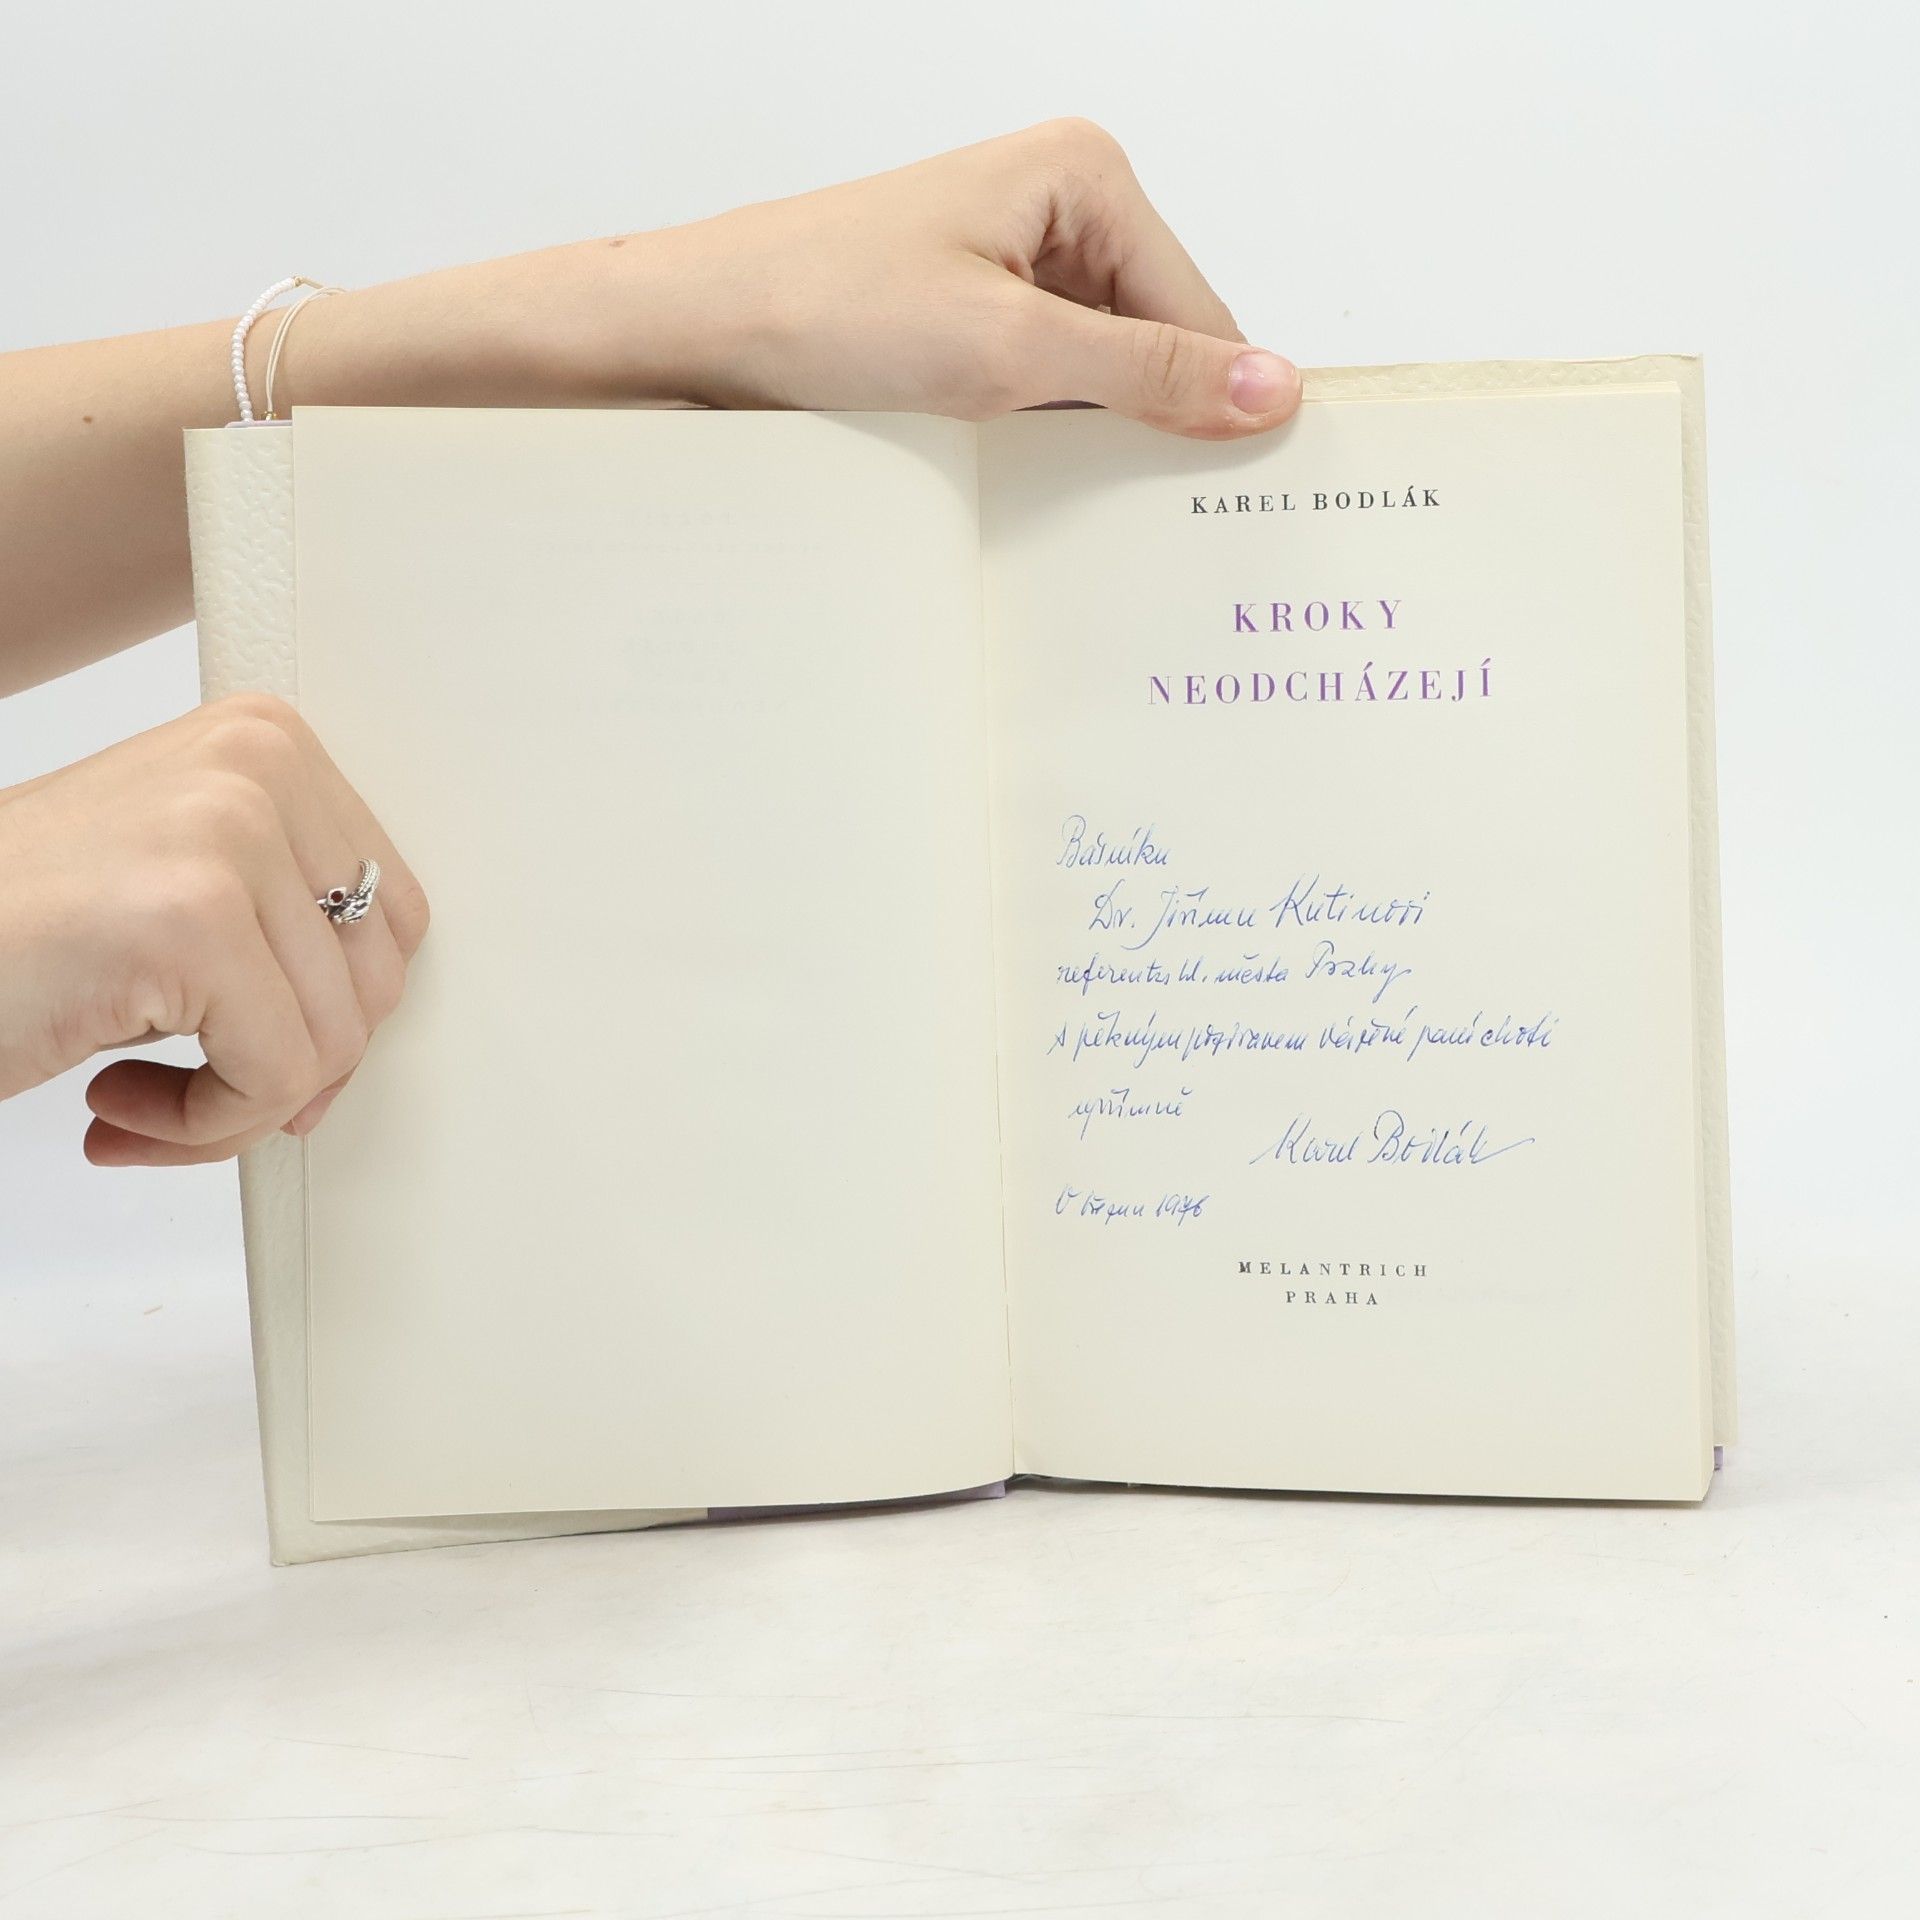 KAREL BODLÁK
KROKY
NEODCHÁZEJÍ
Básníku
Dr. Jiřímu Kutinovi
hl. města Prahy
s pěkným pozdravem vzácné paní choti
upřímně
Karel Bodlák
V březnu 1976
MELANTRICH
PRAHA